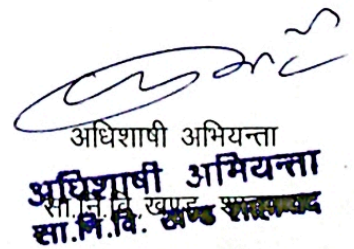 अधिशाषी अभियन्ता
अधिशाषी अभियन्ता
सा.नि.वि. खण्ड
सा.नि.वि. खण्ड